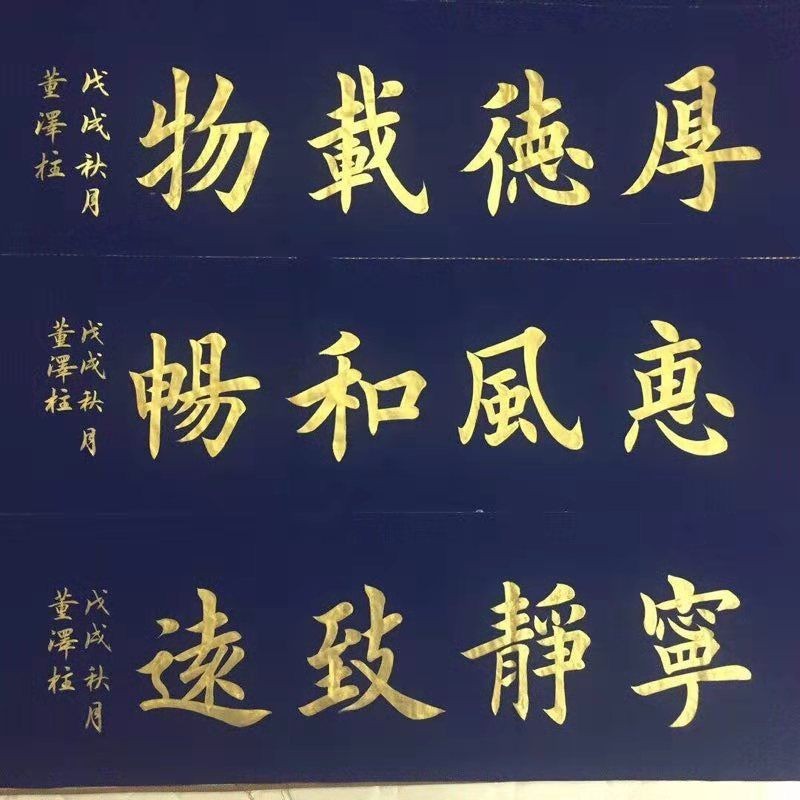 厚德載物
戊戌秋月
董澤柱
惠風和暢
戊戌秋月
董澤柱
寧靜致遠
戊戌秋月
董澤柱